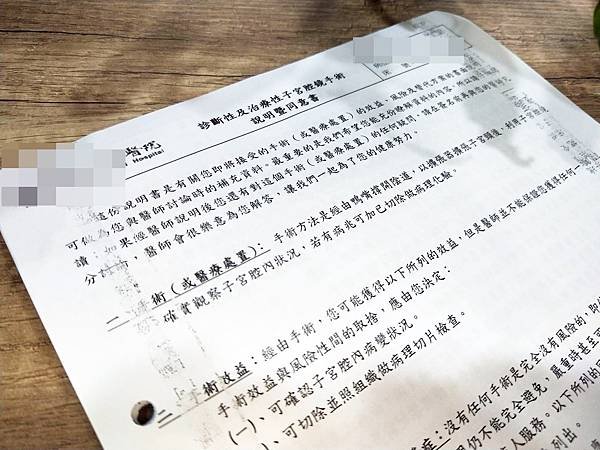 醫院
Hospital
診斷性及治療性子宮腔鏡手術
說明暨同意書
這份說明書是有關您即將接受的手術（或醫療處置）的效益、風險及替代方案的書面
可做為您與醫師討論時的補充資料。最重要的是我們希望您能充份瞭解資料的內容，所以請
讀；如果經醫師說明後您還有對這個手術（或醫療處置）的任何疑問，請在簽名前
分，醫師會很樂意為您解答，讓我們一起為了您的健康努力。
一、手術（或醫療處置）：手術方法是經由鴨嘴撐開陰道，以擴張器擴張子宮頸後，利用子宮腔鏡
確實觀察子宮腔內狀況，若有病兆可加已切除做病理化驗。
二、手術效益：經由手術，您可能獲得以下所列的效益，但是醫師並不能保證您獲得任何一
手術效益與風險性間的取捨，應由您決定：
(一)、可確認子宮腔內病變狀況。
、可切除並照組織做病理切片檢查。
：沒有任何手術是完全沒有風險的，即
仍不能完全避免，嚴重時甚至可
人服務。以下所列的
列出。